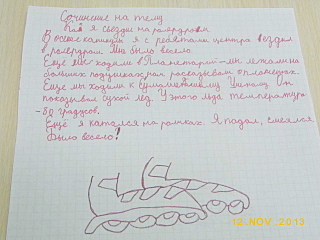 Сочинение на тему
Как я съездил на роледром.
В осение каникулы я с ребятами центра ездел
в роледром. Мне было весело.
Еще мы ходили в Планетарий мы лежали на
больших подушках нам рассказывали о планетах.
Еще мы ходили к сумашедшему учёному. Он
показывал сухой лед. У этого льда температура
-80 градусов.
Ещё я катался на роликах. Я падал, смеялся.
Было весело!
12.NOV.2013